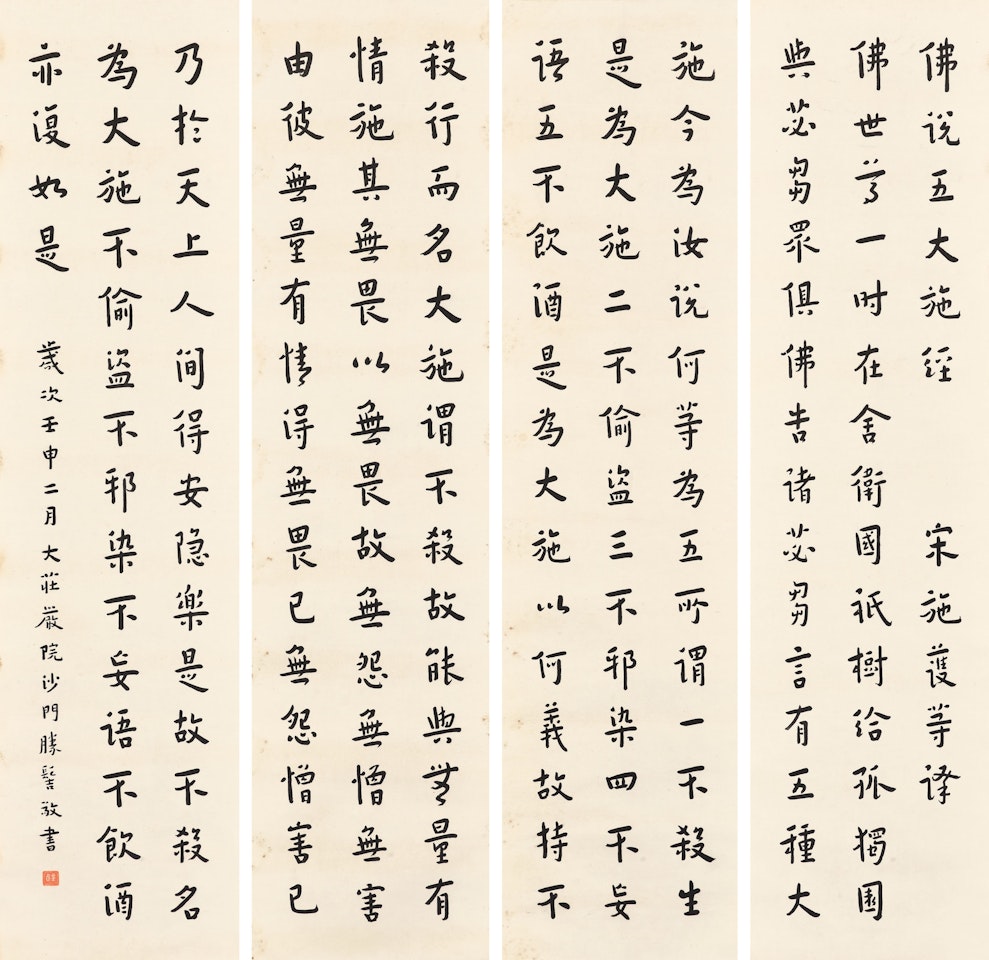 佛说五大施經 宋施護等译
佛世尊一时在舍衛國祇樹给孤獨園
與苾芻眾俱佛告诸苾芻言有五種大
施今為汝说何等為五所谓一不殺生
是為大施二不偷盜三不邪染四不妄
语五不飲酒是為大施以何義故持不
殺行而名大施谓不殺故能與無量有
情施其無畏以無畏故無怨無憎無害
由彼無量有情得無畏已無怨憎害已
乃於天上人间得安隐樂是故不殺名
為大施不偷盜不邪染不妄语不飲酒
亦復如是 歲次壬申二月大莊嚴院沙門勝髻敬書